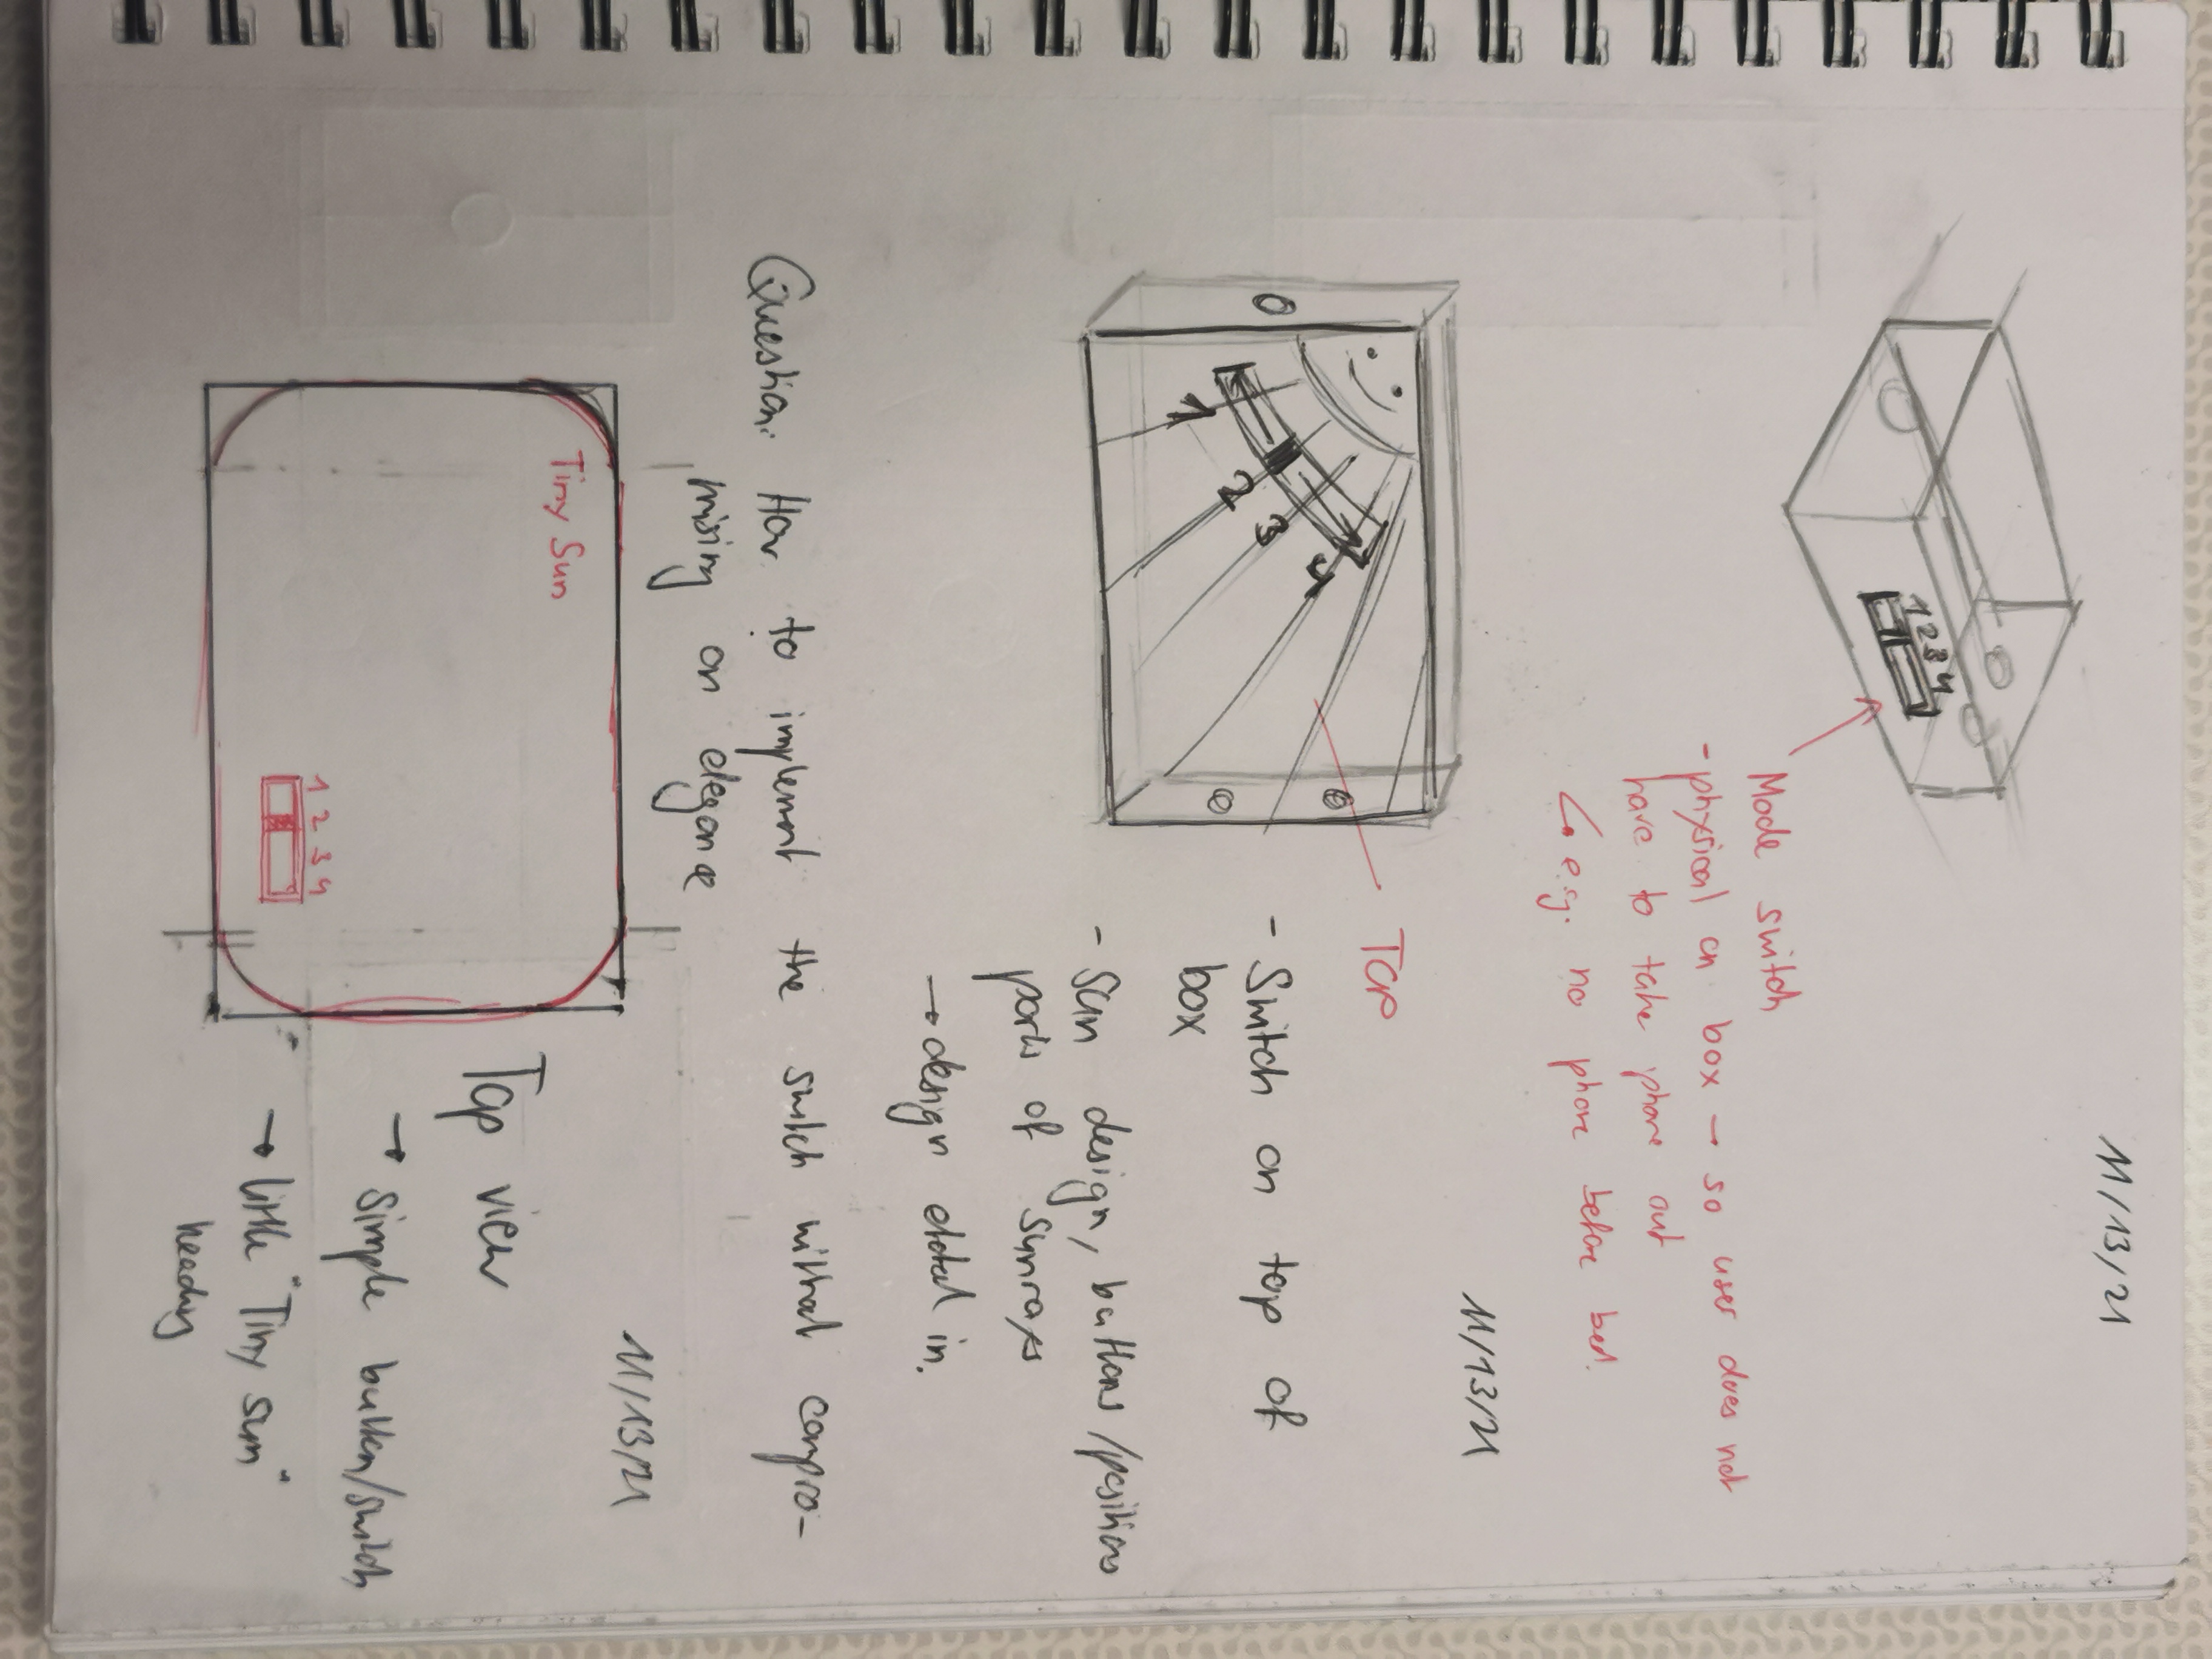 11/13/21
1 2 3 4
Mode switch
- physical on box → so user does not
have to take phone out
↳ e.g. no phone before bed.
11/13/21
1
2
3
4
TOP
- Switch on top of
box
- Sun design, buttons/positions
parts of Sunrays
→ design detail in.
Question: How to implement the switch without compro-
mising on elegance
11/13/21
Tiny Sun
1 2 3 4
Top view
→ Simple button/switch
→ little "Tiny sun"
heading